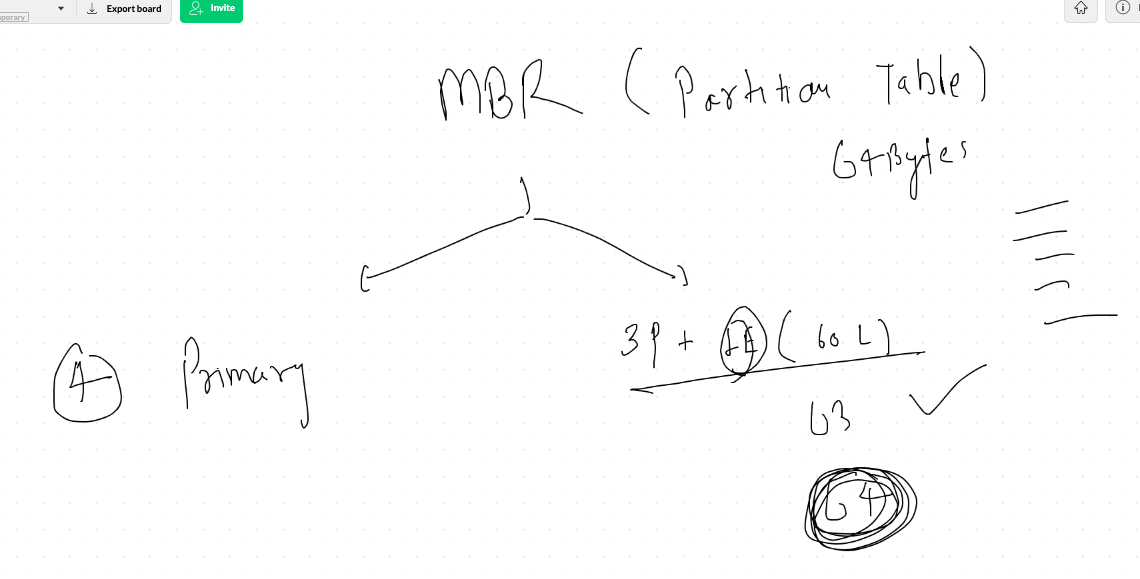 Export board
Invite
MBR (Partition Table)
64Bytes
4 Primary
3P + 1E (60 L)
63
64